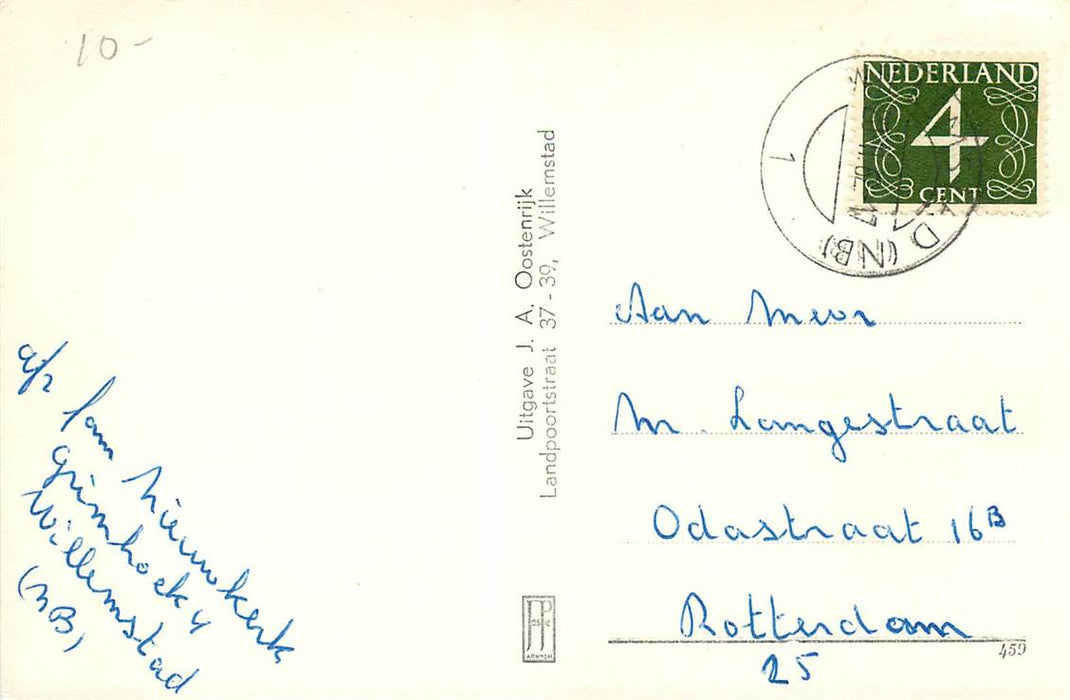 10-
a/z
fam Nieuwkerk
Grimhoek 4
Willemstad
(NB)
Uitgave J. A. Oostenrijk
Landpoortstraat 37-39, Willemstad
JP
JosPé
ARNHEM
NEDERLAND
4
CENT
1
D (NB)
Aan Mevr
M. Langestraat
Odastraat 16B
Rotterdam
25
459